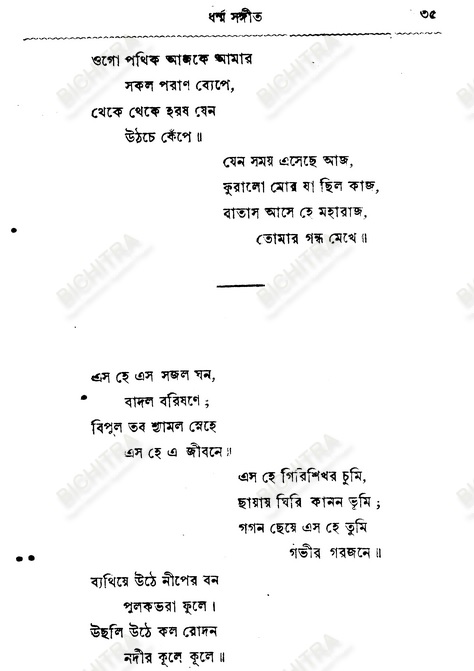 ধর্ম্ম সঙ্গীত ৩৫
ওগো পথিক আজকে আমার
সকল পরাণ ব্যেপে,
থেকে থেকে হরষ যেন
উঠচে কেঁপে॥
যেন সময় এসেছে আজ,
ফুরালো মোর যা ছিল কাজ,
বাতাস আসে হে মহারাজ,
তোমার গন্ধ মেখে॥
এস হে এস সজল ঘন,
বাদল বরিষণে;
বিপুল তব শ্যামল স্নেহে
এস হে এ জীবনে॥
এস হে গিরিশিখর চুমি,
ছায়ায় ঘিরি কানন ভূমি;
গগন ছেয়ে এস হে তুমি
গভীর গরজনে॥
ব্যথিয়ে উঠে নীপের বন
পুলকভরা ফুলে।
উছলি উঠে কল রোদন
নদীর কূলে কূলে॥
BICHITRA
BICHITRA
BICHITRA
BICHITRA
BICHITRA
BICHITRA
BICHITRA
BICHITRA
BICHITRA